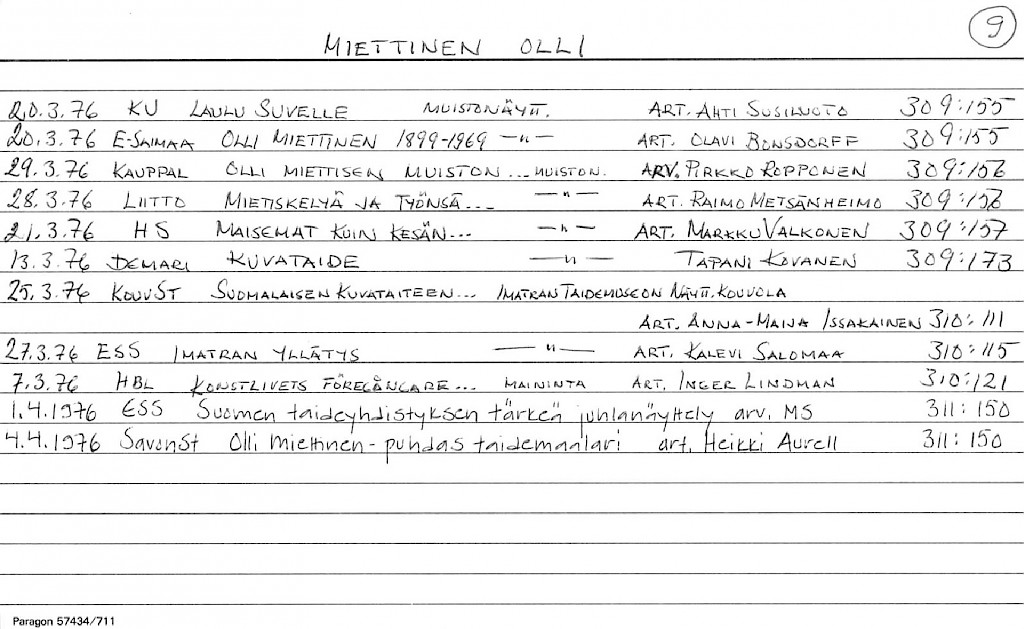 9
MIETTINEN OLLI
20.3.76 KU LAULU SUVELLE MUISTONÄYTT. ART. AHTI SUSILUOTO 309:155
20.3.76 E-SAIMAA OLLI MIETTINEN 1899-1969 —"— ART. OLAVI BONSDORFF 309:155
29.3.76 KAUPPAL OLLI MIETTISEN MUISTON... MUISTON. ARV. PIRKKO ROPPONEN 309:156
28.3.76 LIITTO MIETISKELYÄ JA TYÖNSÄ... —"— ART. RAIMO METSÄNHEIMO 309:156
21.3.76 HS MAISEMAT KUIN KESÄN... —"— ART. MARKKU VALKONEN 309:157
13.3.76 DEMARI KUVATAIDE —"— TAPANI KOVANEN 309:173
25.3.76 KOUVST SUOMALAISEN KUVATAITEEN... IMATRAN TAIDEMUSEON NÄYTT. KOUVOLA
ART. ANNA-MAIJA ISSAKAINEN 310:111
27.3.76 ESS IMATRAN YLLÄTYS —"— ART. KALEVI SALOMAA 310:115
7.3.76 HBL KONSTLIVETS FÖREGÅNGARE... MAININTA ART. INGER LINDMAN 310:121
1.4.1976 ESS Suomen taideyhdistyksen tärkeä juhlanäyttely arv. MS 311:150
4.4.1976 SavonSt Olli Miettinen - puhdas taidemaalari art. Heikki Aurell 311:150
Paragon 57434/711